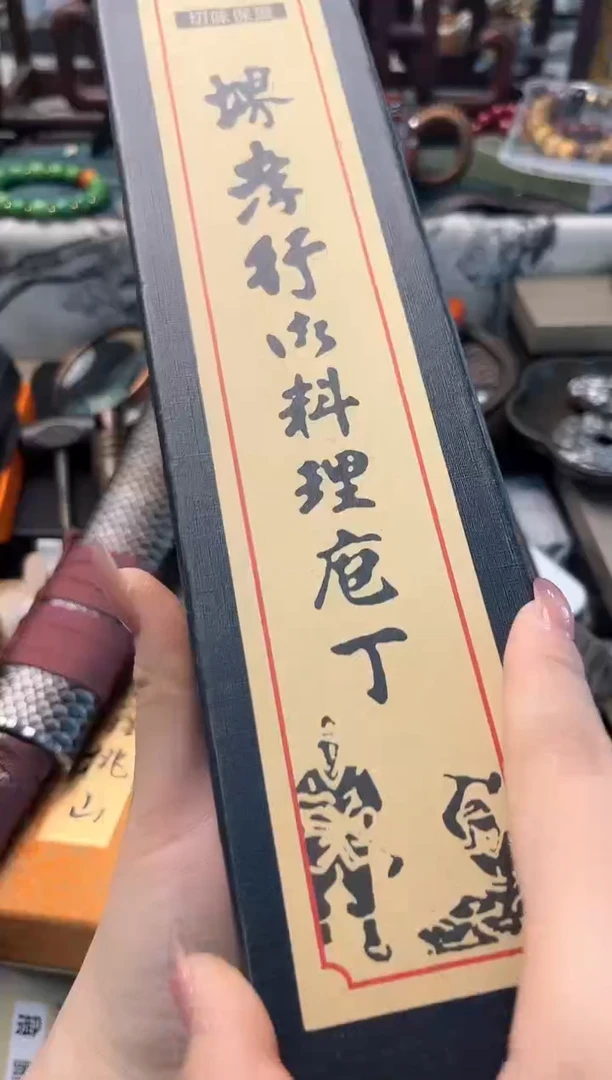 切味保証
堺孝行御料理庖丁
桃
山